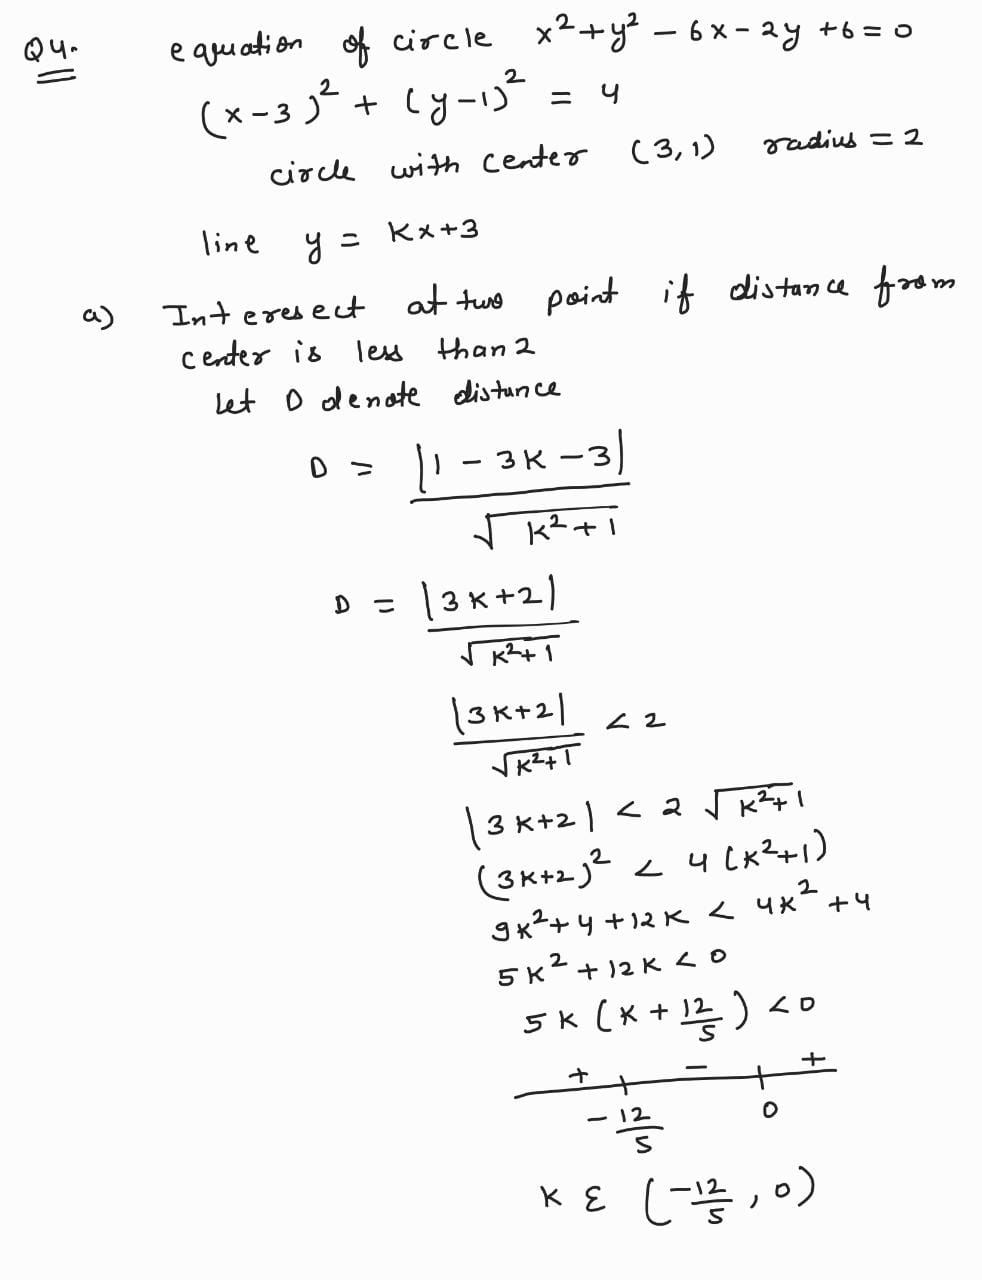 Q4. equation of circle x² + y² - 6x - 2y + 6 = 0
(x-3)² + (y-1)² = 4
circle with center (3,1) radius = 2
line y = Kx+3
a) Interesect at two point if distance from
center is less than 2
Let D denote distance
D = |1 - 3K - 3| / √(K²+1)
D = |3K+2| / √(K²+1)
|3K+2| / √(K²+1) < 2
|3K+2| < 2 √(K²+1)
(3K+2)² < 4 (K²+1)
9K² + 4 + 12K < 4K² + 4
5K² + 12K < 0
5K (K + 12/5) < 0
+ - +
-12/5 0
K ε (-12/5, 0)